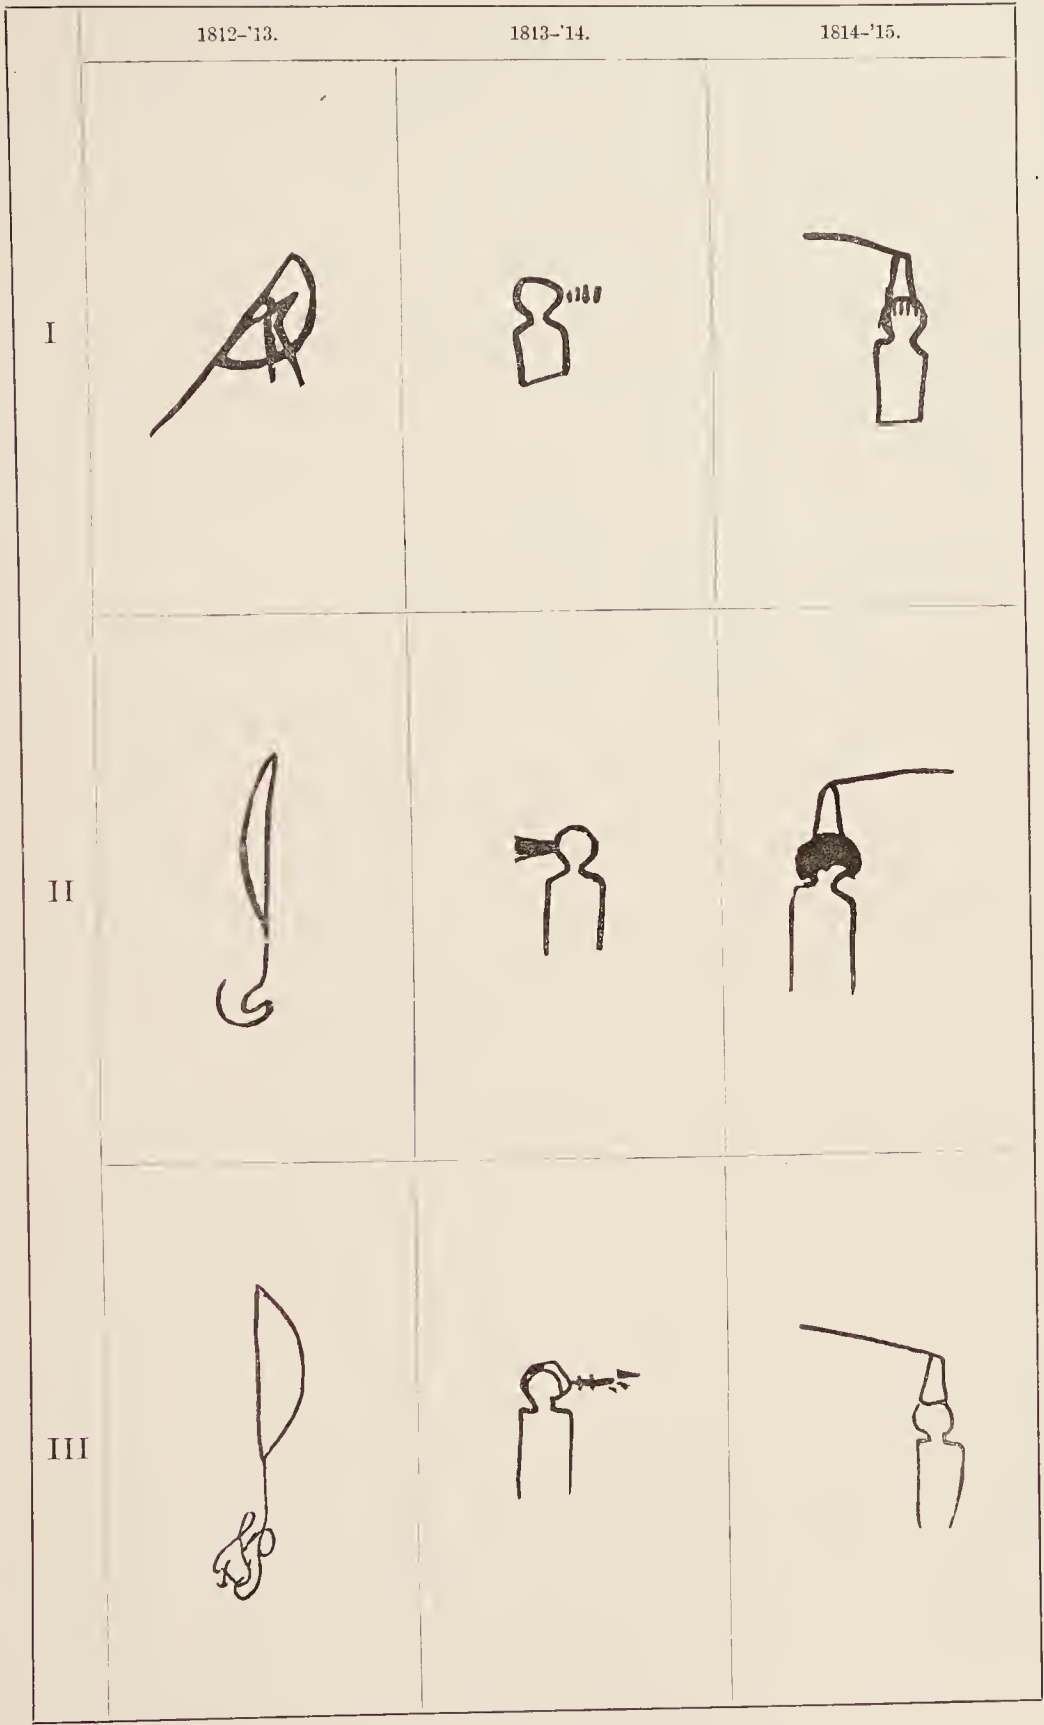 1812-'13. 1813-'14. 1814-'15.
I
II
III